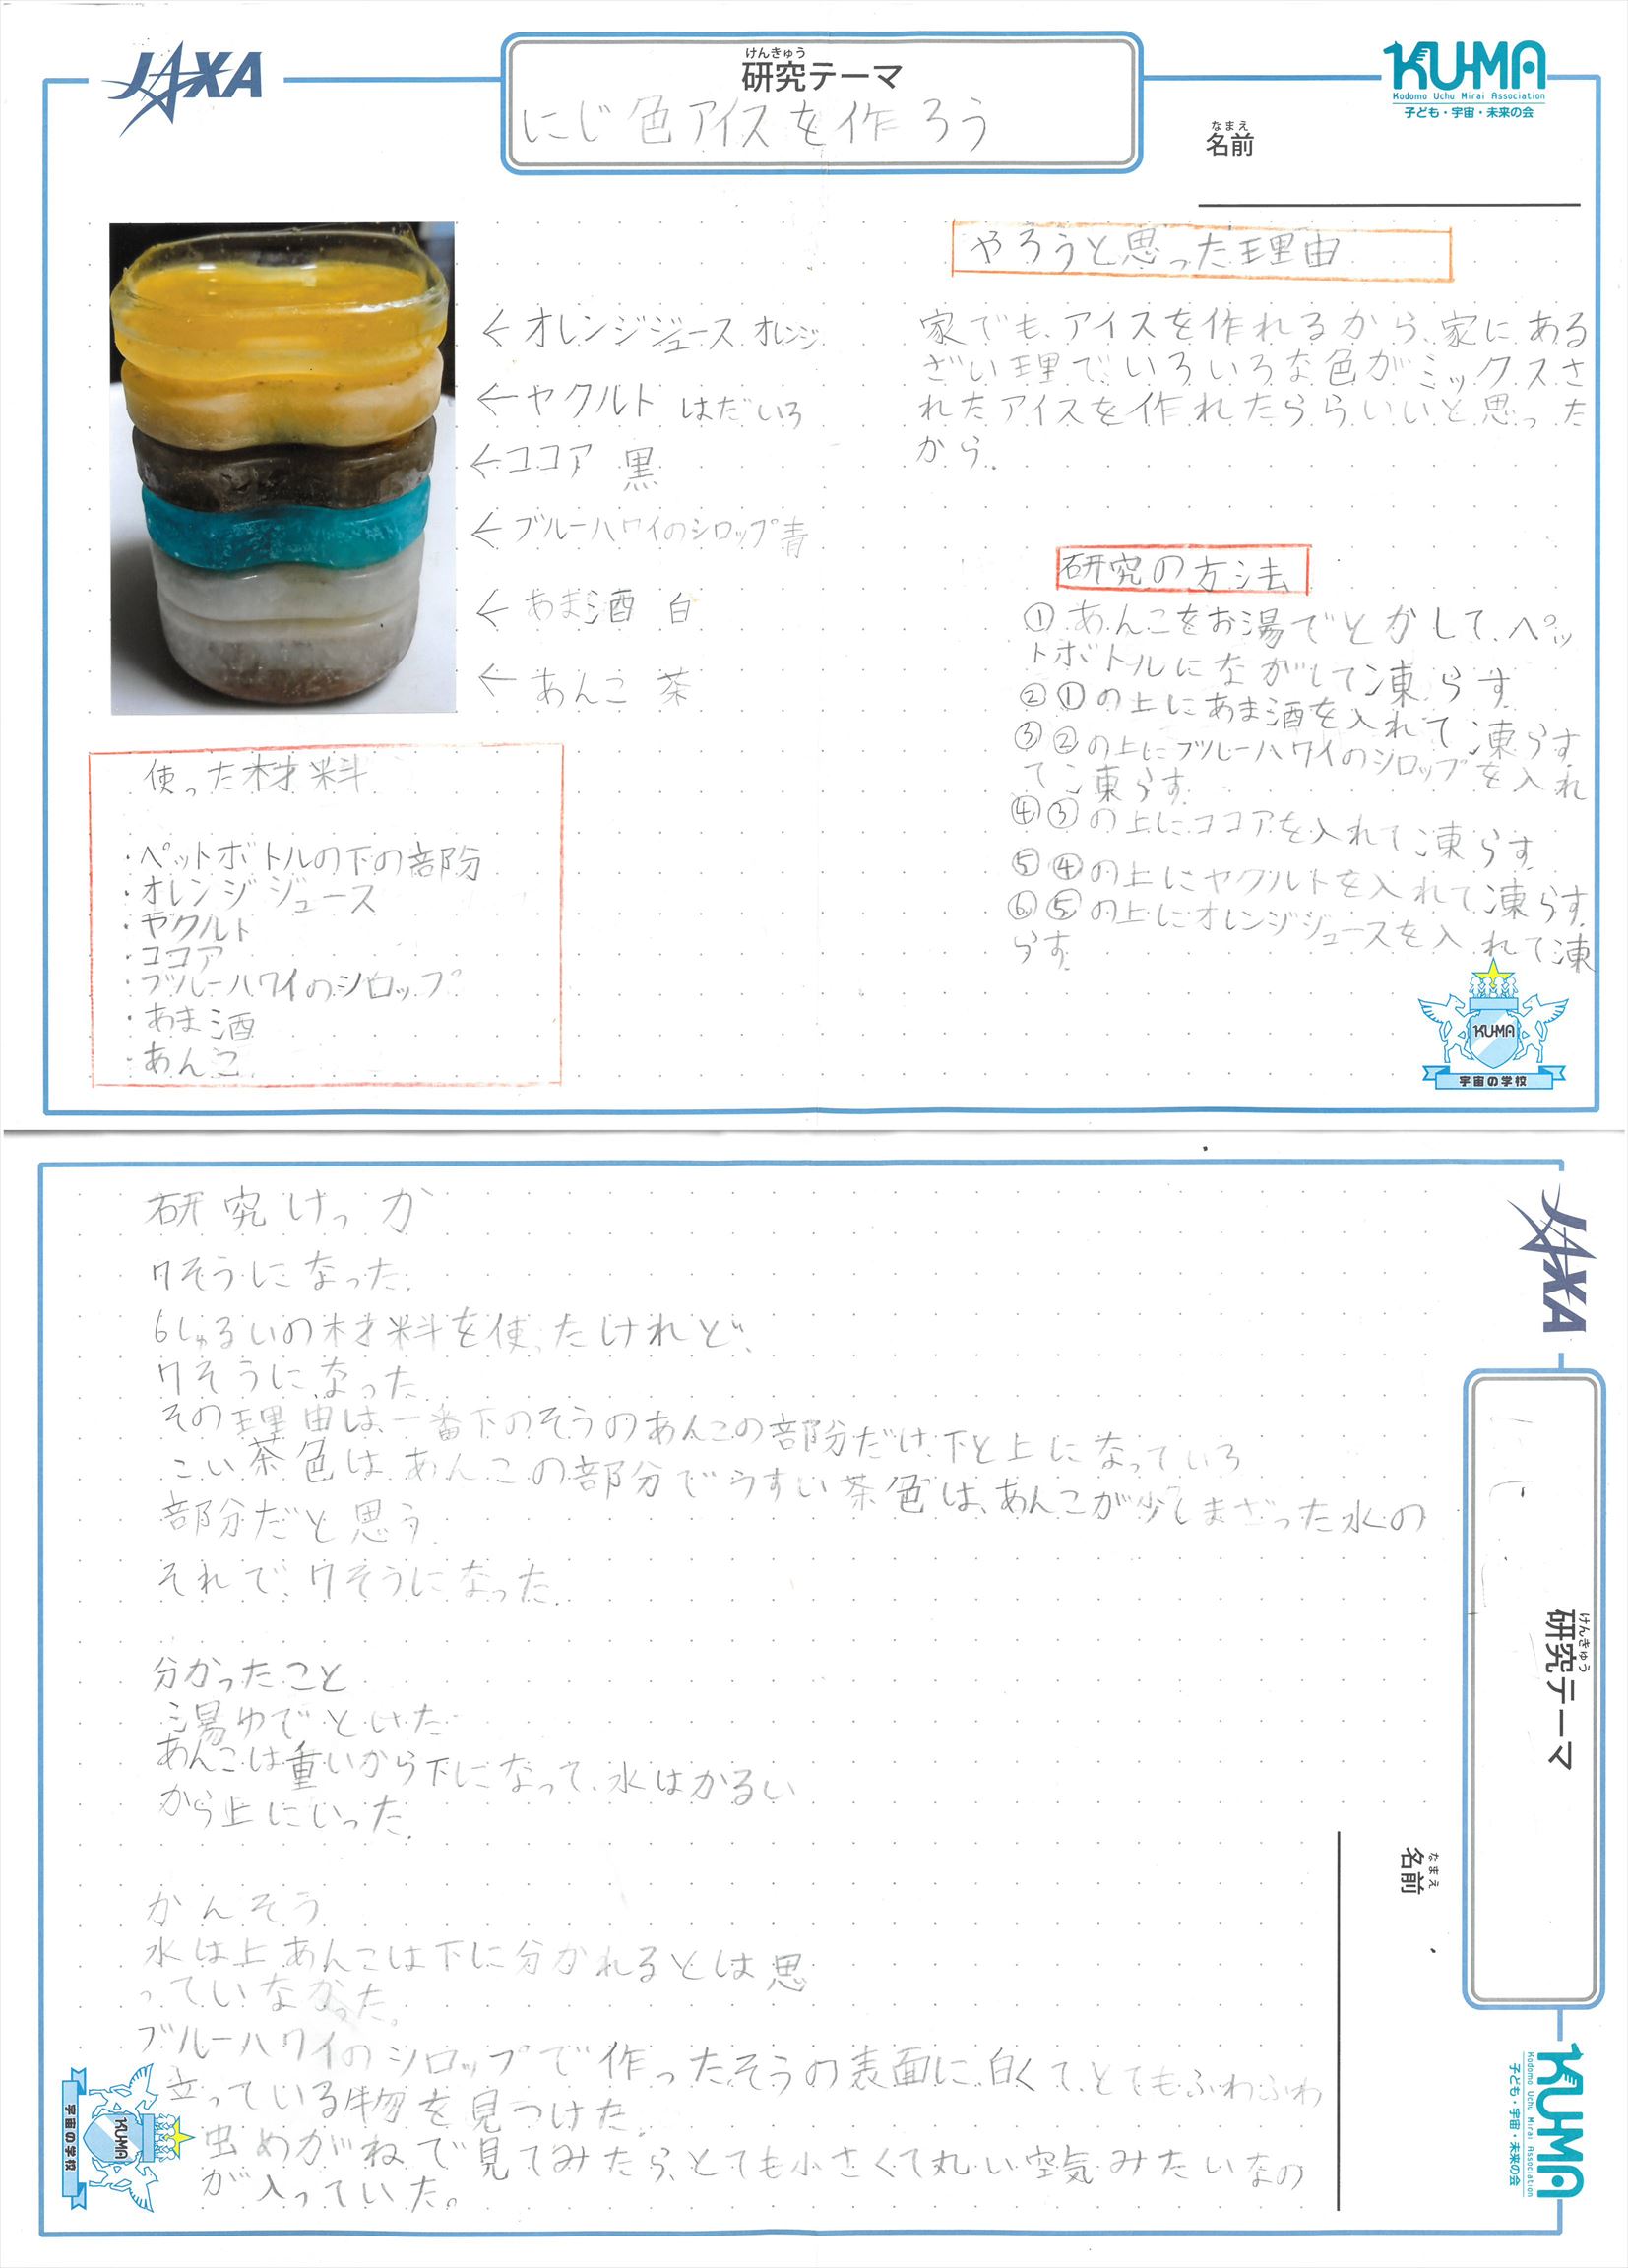 JAXA
けんきゅう
研究テーマ
にじ色アイスを作ろう
KU-MA
Kodomo Uchu Mirai Association
子ども・宇宙・未来の会
なまえ
名前
←オレンジジュース オレンジ
←ヤクルト はだいろ
←ココア 黒
←ブルーハワイのシロップ青
←あま酒 白
←あんこ 茶
使った材料
・ペットボトルの下の部分
・オレンジジュース
・ヤクルト
・ココア
・ブルーハワイのシロップ
・あま酒
・あんこ
やろうと思った理由
家でも、アイスを作れるから、家にある
ざい理で、いろいろな色がミックスさ
れたアイスを作れたららいいと思った
から。
研究の方法
①あんこをお湯でとかして、ペッ
トボトルにながして凍らす
②①の上にあま酒を入れて凍らす
③②の上にブルーハワイのシロップを入れ
て凍らす
④③の上にココアを入れて凍らす
⑤④の上にヤクルトを入れて凍らす
⑥⑤の上にオレンジジュースを入れて凍
らす
KU-MA
宇宙の学校
研究けっか
7そうになった。
6しゅるいの材料を使ったけれど、
7そうになった
その理由は、一番下のそうのあんこの部分だけ、下と上になっている
こい茶色は、あんこの部分でうすい茶色は、あんこが少しまざった水の
部分だと思う。
それで、7そうになった。
分かったこと
湯ゆでとけた
あんこは重いから下になって、水はかるい
から上にいった。
かんそう
水は上あんこは下に分かれるとは思
っていなかった。
ブルーハワイのシロップで作ったそうの表面に白くて、とてもふわふわ
立っている物を見つけた。
虫めがねで見てみたら、とても小さくて丸い空気みたいなの
が入っていた。
JAXA
けんきゅう
研究テーマ
なまえ
名前
KU-MA
Kodomo Uchu Mirai Association
子ども・宇宙・未来の会
KU-MA
宇宙の学校